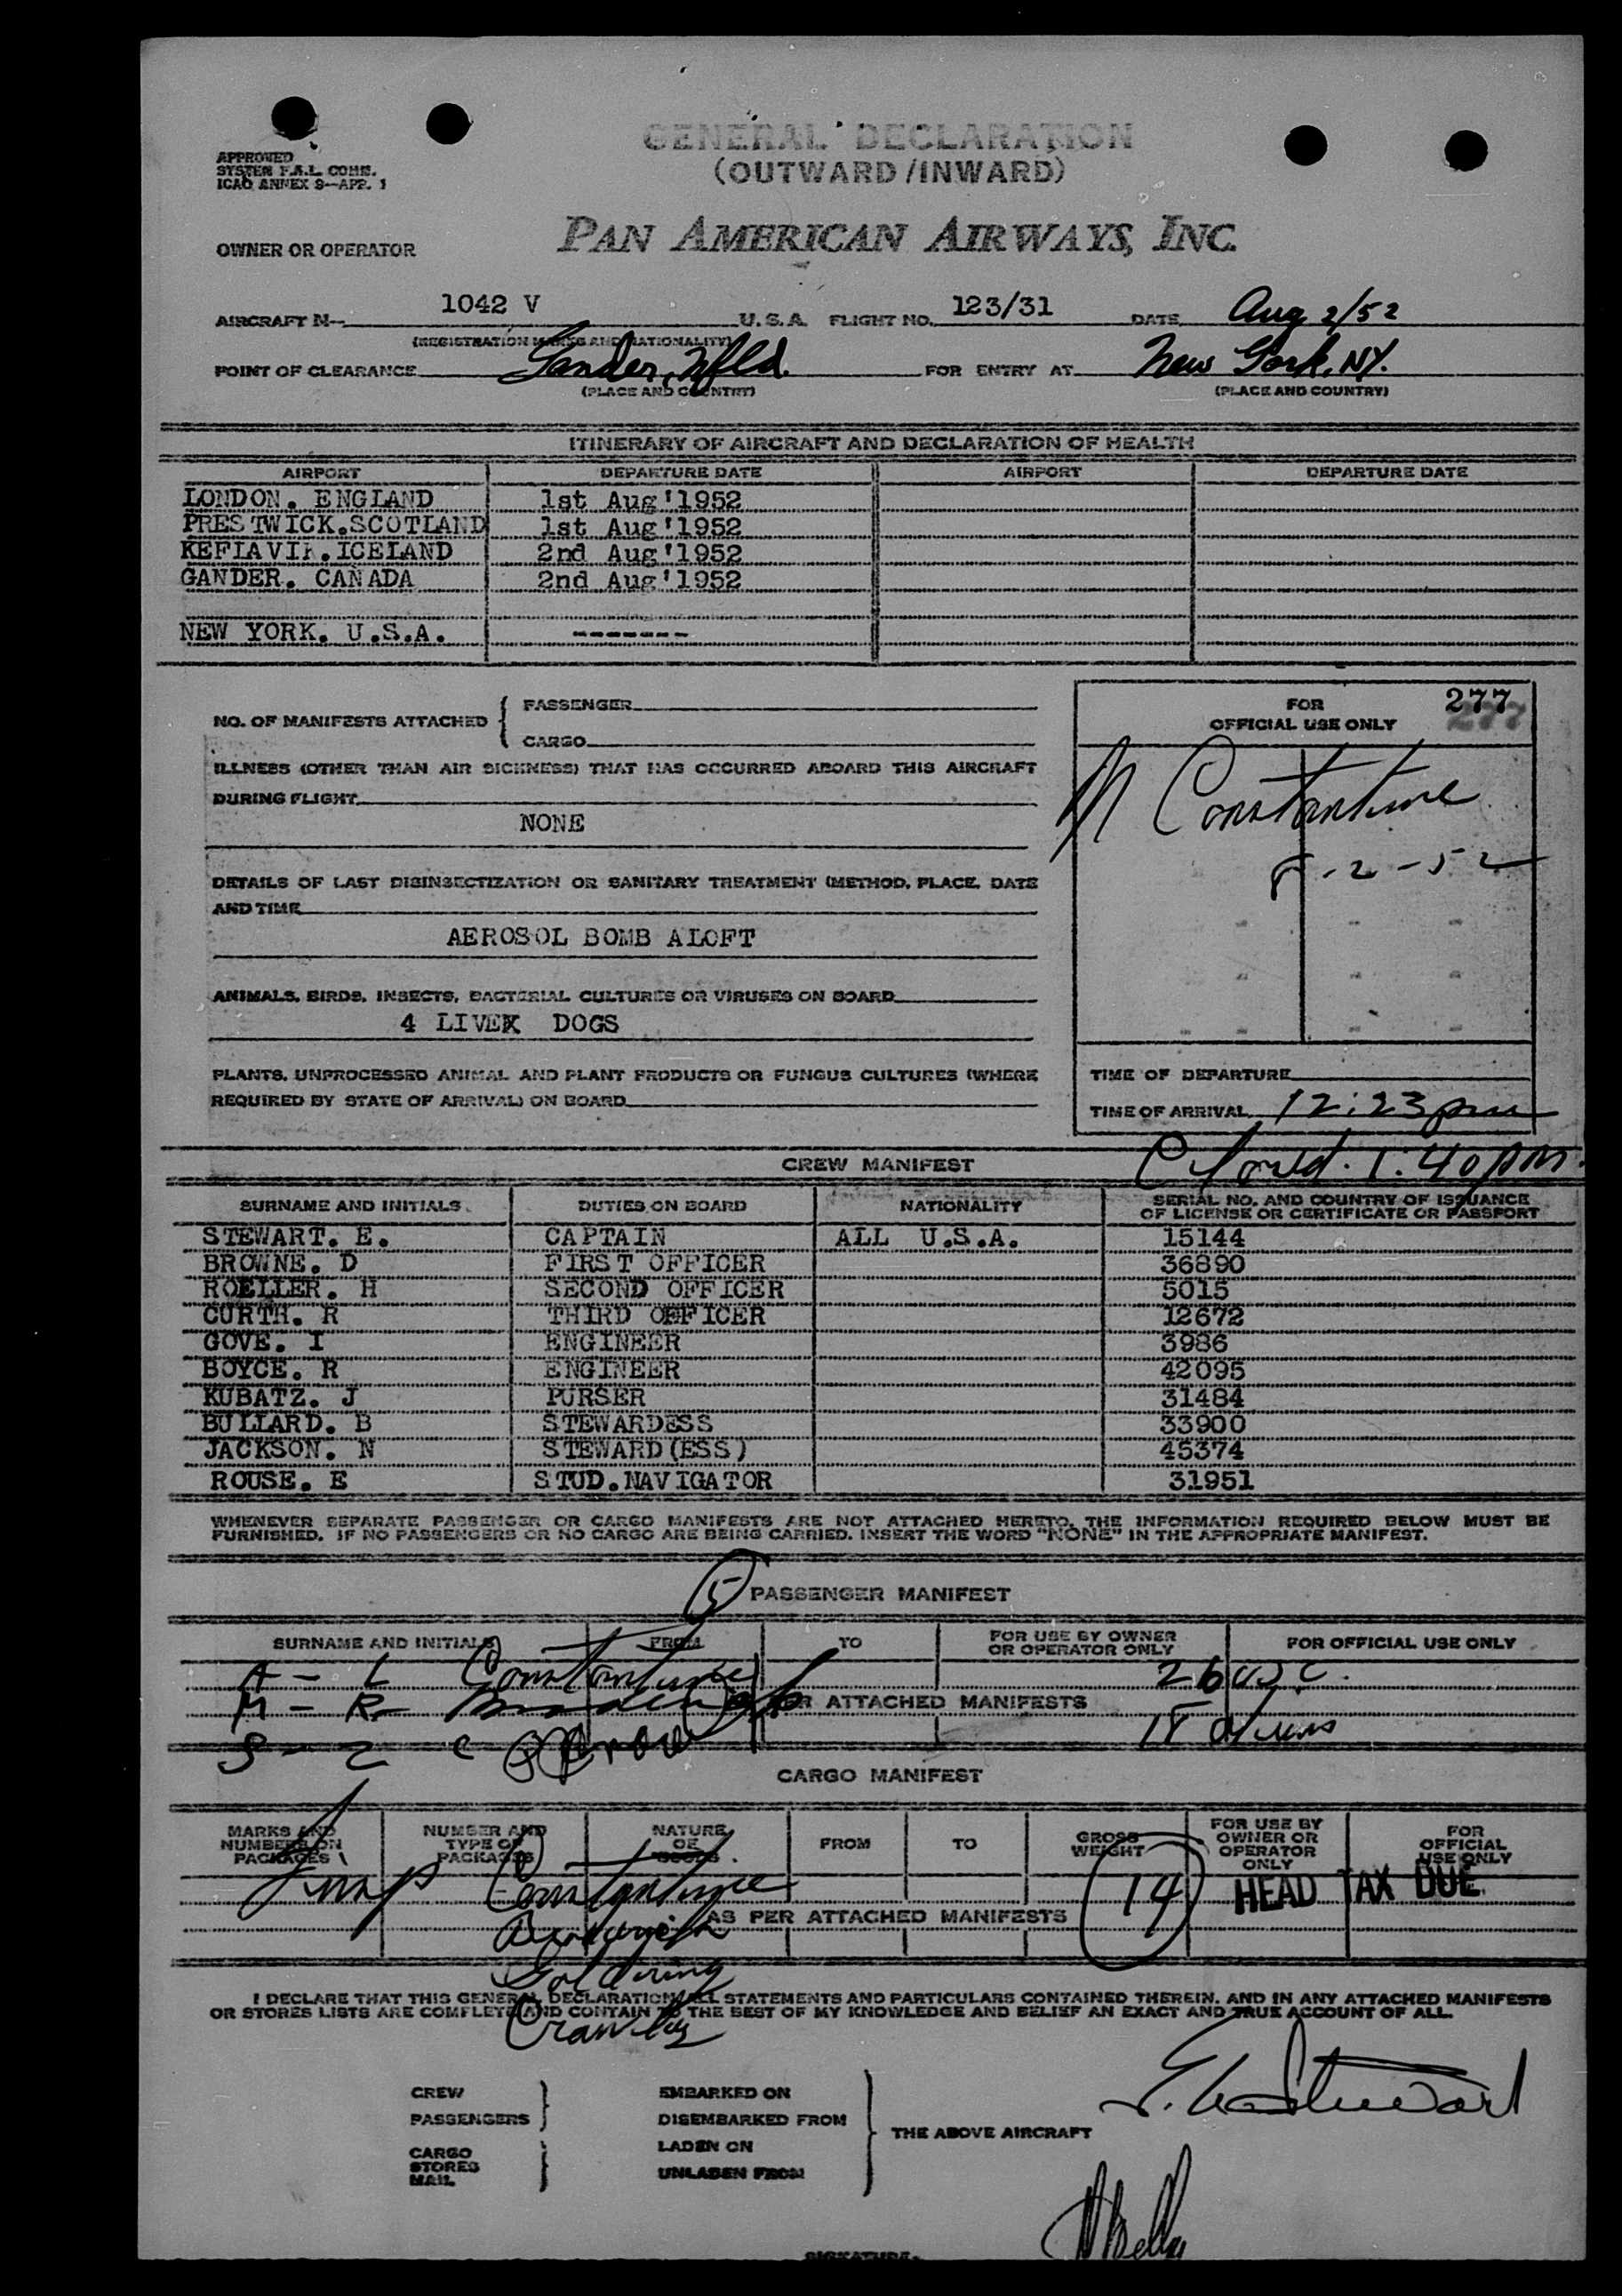 GENERAL DECLARATION
(OUTWARD/INWARD)
APPROVED
SYSTEM F.A.L. COMM.
ICAO ANNEX 9—APP. 1
OWNER OR OPERATOR PAN AMERICAN AIRWAYS, INC.
AIRCRAFT N— 1042 V U.S.A. FLIGHT NO. 123/31 DATE Aug 2/52
(REGISTRATION MARKS AND NATIONALITY)
POINT OF CLEARANCE Gander, Nfld. FOR ENTRY AT New York, NY.
(PLACE AND COUNTRY) (PLACE AND COUNTRY)
ITINERARY OF AIRCRAFT AND DECLARATION OF HEALTH
AIRPORT DEPARTURE DATE AIRPORT DEPARTURE DATE
LONDON. ENGLAND 1st Aug'1952
PRESTWICK.SCOTLAND 1st Aug'1952
KEFLAVIK.ICELAND 2nd Aug'1952
GANDER. CANADA 2nd Aug'1952
NEW YORK. U.S.A. -------
NO. OF MANIFESTS ATTACHED { PASSENGER
CARGO
FOR
OFFICIAL USE ONLY
277
277
ILLNESS (OTHER THAN AIR SICKNESS) THAT HAS OCCURRED ABOARD THIS AIRCRAFT
DURING FLIGHT
NONE
M Constantine
8-2-52
DETAILS OF LAST DISINSECTIZATION OR SANITARY TREATMENT (METHOD, PLACE, DATE
AND TIME
AEROSOL BOMB ALOFT
ANIMALS, BIRDS, INSECTS, BACTERIAL CULTURES OR VIRUSES ON BOARD
4 LIVEX DOGS
PLANTS, UNPROCESSED ANIMAL AND PLANT PRODUCTS OR FUNGUS CULTURES (WHERE
REQUIRED BY STATE OF ARRIVAL) ON BOARD
TIME OF DEPARTURE
TIME OF ARRIVAL 12:23pm
1:40pm.
CREW MANIFEST
SURNAME AND INITIALS DUTIES ON BOARD NATIONALITY SERIAL NO. AND COUNTRY OF ISSUANCE
OF LICENSE OR CERTIFICATE OR PASSPORT
STEWART. E. CAPTAIN ALL U.S.A. 15144
BROWNE. D FIRST OFFICER 36890
ROELLER. H SECOND OFFICER 5015
CURTH. R THIRD OFFICER 12672
GOVE. I ENGINEER 3986
BOYCE. R ENGINEER 42095
KUBATZ. J PURSER 31484
BULLARD. B STEWARDESS 33900
JACKSON. N STEWARD(ESS) 45374
ROUSE. E STUD.NAVIGATOR 31951
WHENEVER SEPARATE PASSENGER OR CARGO MANIFESTS ARE NOT ATTACHED HERETO, THE INFORMATION REQUIRED BELOW MUST BE
FURNISHED. IF NO PASSENGERS OR NO CARGO ARE BEING CARRIED, INSERT THE WORD "NONE" IN THE APPROPRIATE MANIFEST.
5 PASSENGER MANIFEST
SURNAME AND INITIALS FROM TO FOR USE BY OWNER
OR OPERATOR ONLY FOR OFFICIAL USE ONLY
A - L Constantine 26
M - R ATTACHED MANIFESTS
S - Z 18
CARGO MANIFEST
MARKS AND
NUMBERS ON
PACKAGES
NUMBER AND
TYPE OF
PACKAGES
NATURE
OF
GOODS
FROM
TO
GROSS
WEIGHT
FOR USE BY
OWNER OR
OPERATOR
ONLY
FOR
OFFICIAL
USE ONLY
Constantine 14 HEAD TAX DUE
AS PER ATTACHED MANIFESTS
Goldring
Crawley
I DECLARE THAT THIS GENERAL DECLARATION, ALL STATEMENTS AND PARTICULARS CONTAINED THEREIN, AND IN ANY ATTACHED MANIFESTS
OR STORES LISTS ARE COMPLETE AND CONTAIN TO THE BEST OF MY KNOWLEDGE AND BELIEF AN EXACT AND TRUE ACCOUNT OF ALL.
Stewart
CREW
PASSENGERS
CARGO
STORES
MAIL
EMBARKED ON
DISEMBARKED FROM
LADEN ON
UNLADEN FROM
THE ABOVE AIRCRAFT
SIGNATURE